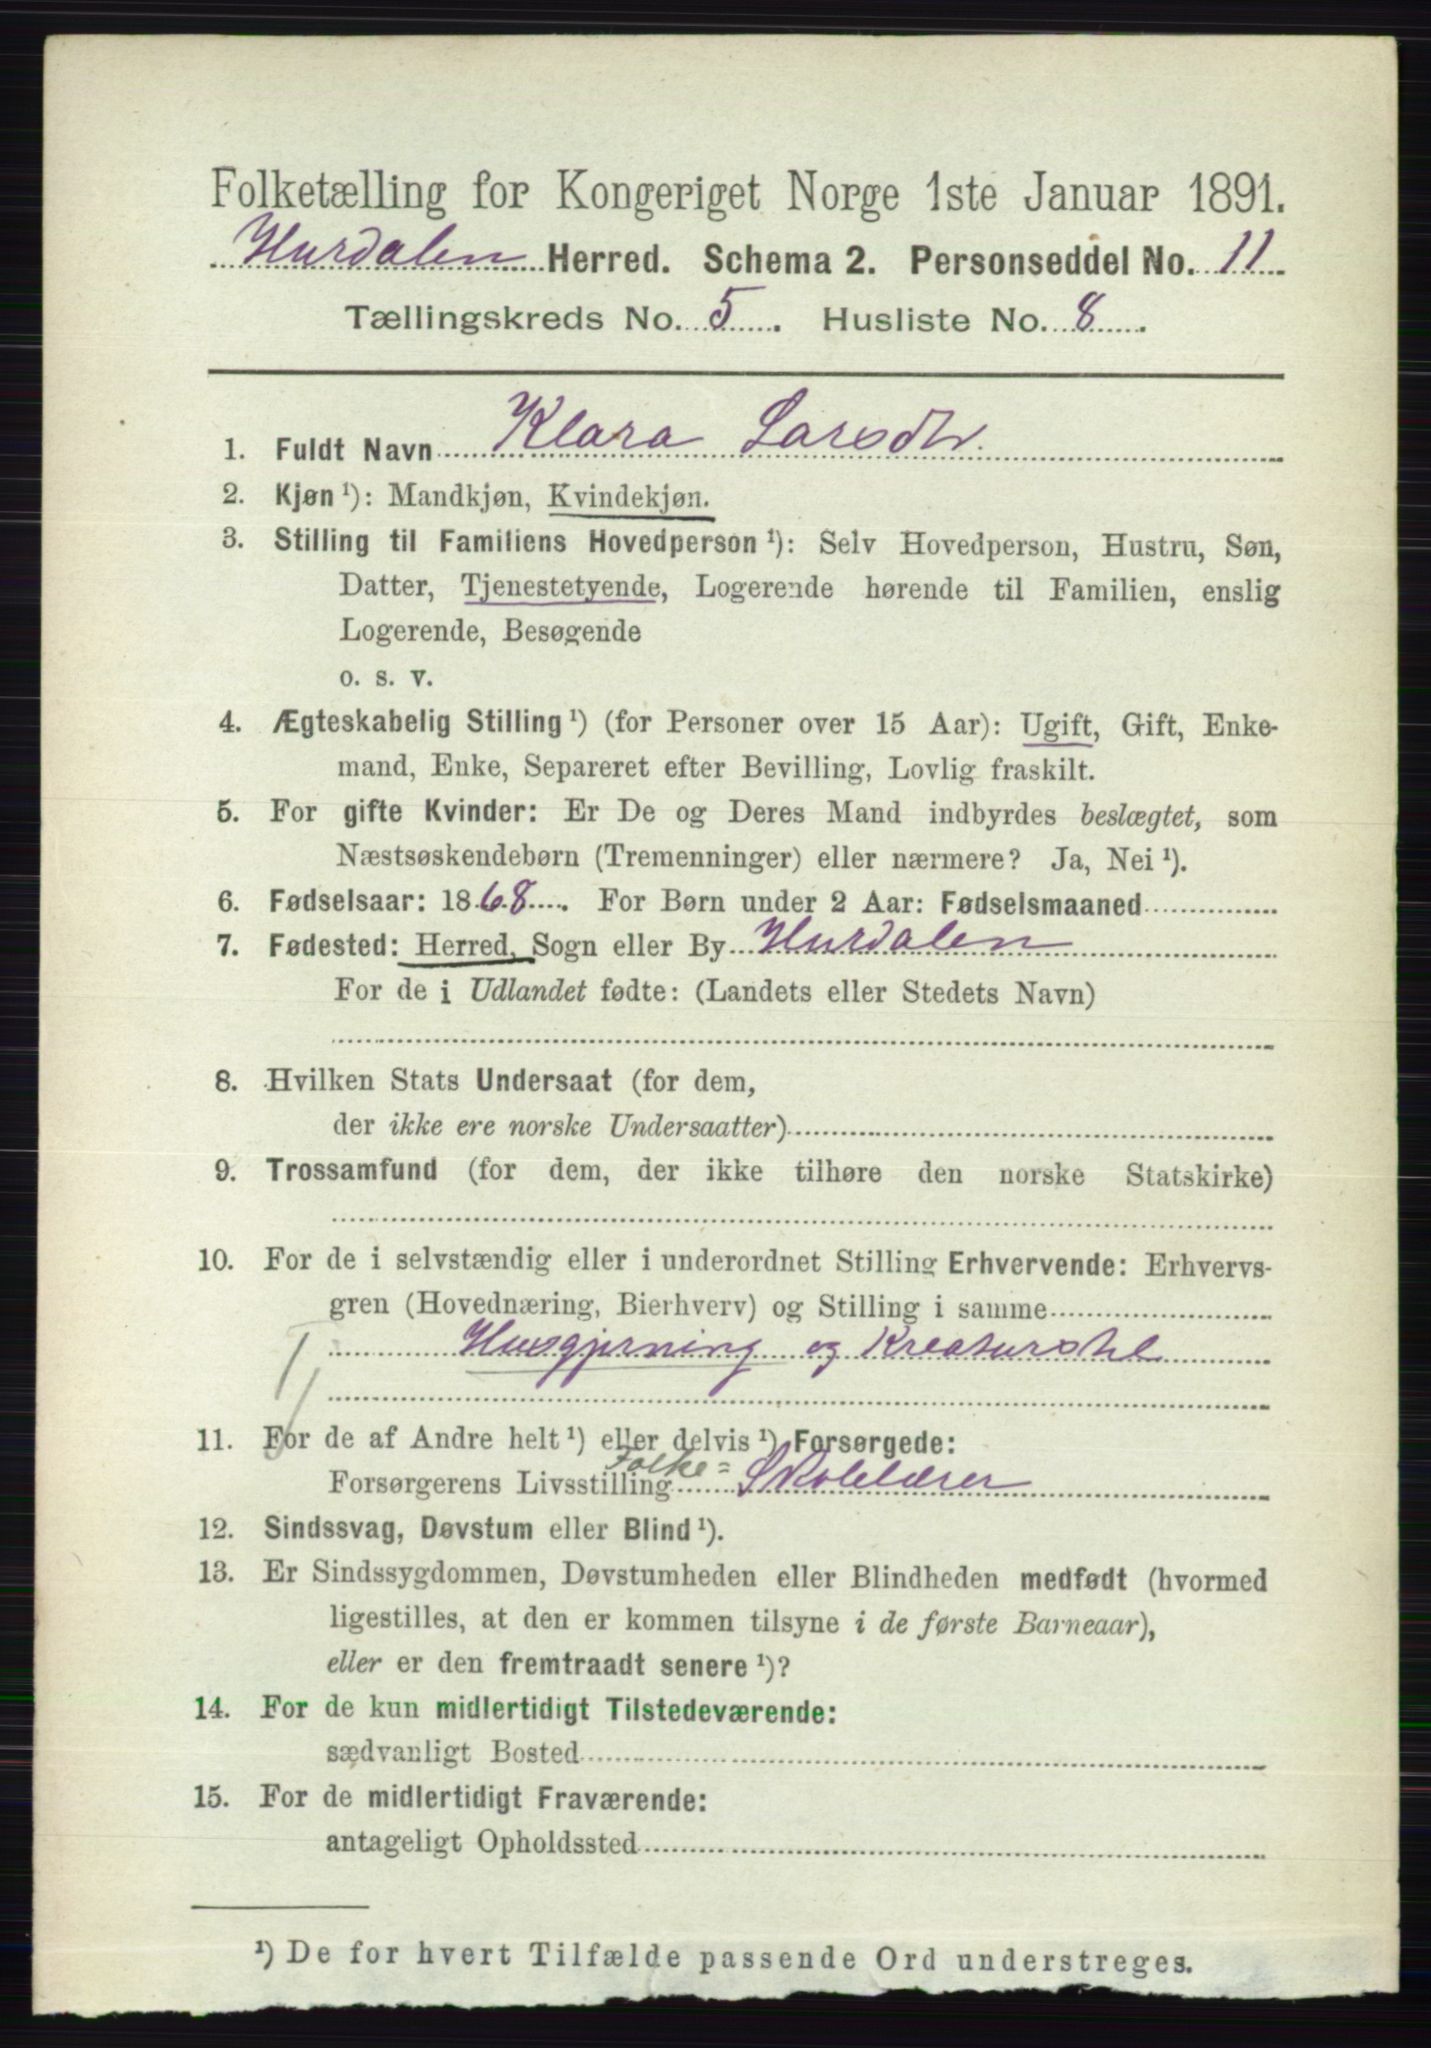 Folketælling for Kongeriget Norge 1ste Januar 1891.
Hurdalen Herred. Schema 2. Personseddel No. 11
Tællingskreds No. 5. Husliste No. 8
1. Fuldt Navn Klara Larsdtr.
2. Kjøn ¹): Mandkjøn, Kvindekjøn.
3. Stilling til Familiens Hovedperson ¹): Selv Hovedperson, Hustru, Søn,
Datter, Tjenestetyende, Logerende hørende til Familien, enslig
Logerende, Besøgende
o. s. v.
4. Ægteskabelig Stilling ¹) (for Personer over 15 Aar): Ugift, Gift, Enke-
mand, Enke, Separeret efter Bevilling, Lovlig fraskilt.
5. For gifte Kvinder: Er De og Deres Mand indbyrdes beslægtet, som
Næstsøskendebørn (Tremenninger) eller nærmere? Ja, Nei ¹).
6. Fødselsaar: 1868. For Børn under 2 Aar: Fødselsmaaned
7. Fødested: Herred, Sogn eller By Hurdalen
For de i Udlandet fødte: (Landets eller Stedets Navn)
8. Hvilken Stats Undersaat (for dem,
der ikke ere norske Undersaatter)
9. Trossamfund (for dem, der ikke tilhøre den norske Statskirke)
10. For de i selvstændig eller i underordnet Stilling Erhvervende: Erhvervs-
gren (Hovednæring, Bierhverv) og Stilling i samme
Husgjerning og Kreaturstel
11. For de af Andre helt ¹) eller delvis ¹) Forsørgede:
Forsørgerens Livsstilling Folke= Skolelærer
12. Sindssvag, Døvstum eller Blind ¹).
13. Er Sindssygdommen, Døvstumheden eller Blindheden medfødt (hvormed
ligestilles, at den er kommen tilsyne i de første Barneaar),
eller er den fremtraadt senere ¹)?
14. For de kun midlertidigt Tilstedeværende:
sædvanligt Bosted
15. For de midlertidigt Fraværende:
antageligt Opholdssted
¹) De for hvert Tilfælde passende Ord understreges.